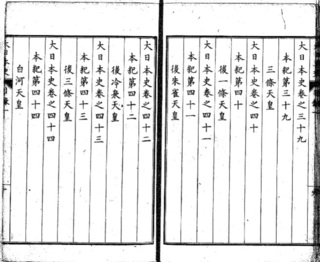 大日本史卷之三十九
本紀第三十九
三條天皇
大日本史卷之四十
本紀第四十
後一條天皇
大日本史卷之四十一
本紀第四十一
後朱雀天皇
大日本史卷之四十二
本紀第四十二
後冷泉天皇
大日本史卷之四十三
本紀第四十三
後三條天皇
大日本史卷之四十四
本紀第四十四
白河天皇